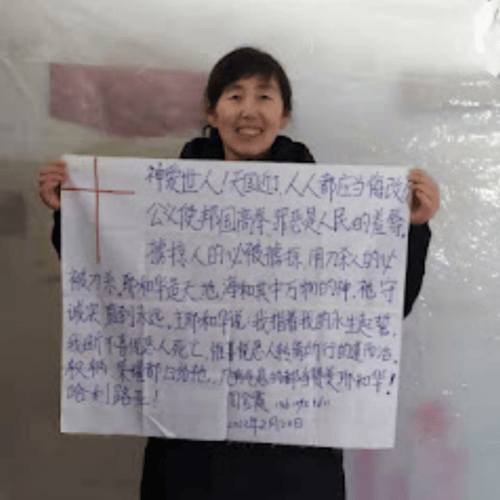 神爱世人!天国近!人人都应当悔改
公义使邦国高举.罪恶是人民的羞辱.
掳掠人的必被掳掠.用刀杀人的必
被刀杀.耶和华造天、地、海和其中万物的神.祂守
诚实直到永远.主耶和华说:我指着我的永生起誓
我断不喜悦恶人死亡,惟喜悦恶人转离所行的道而活.
权柄荣耀都归给祂,凡有气息的都当赞美耶和华!
哈利路亚!
周金霞
2022年2月20日